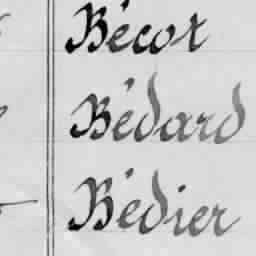 Bécot
Bédard
Bédier